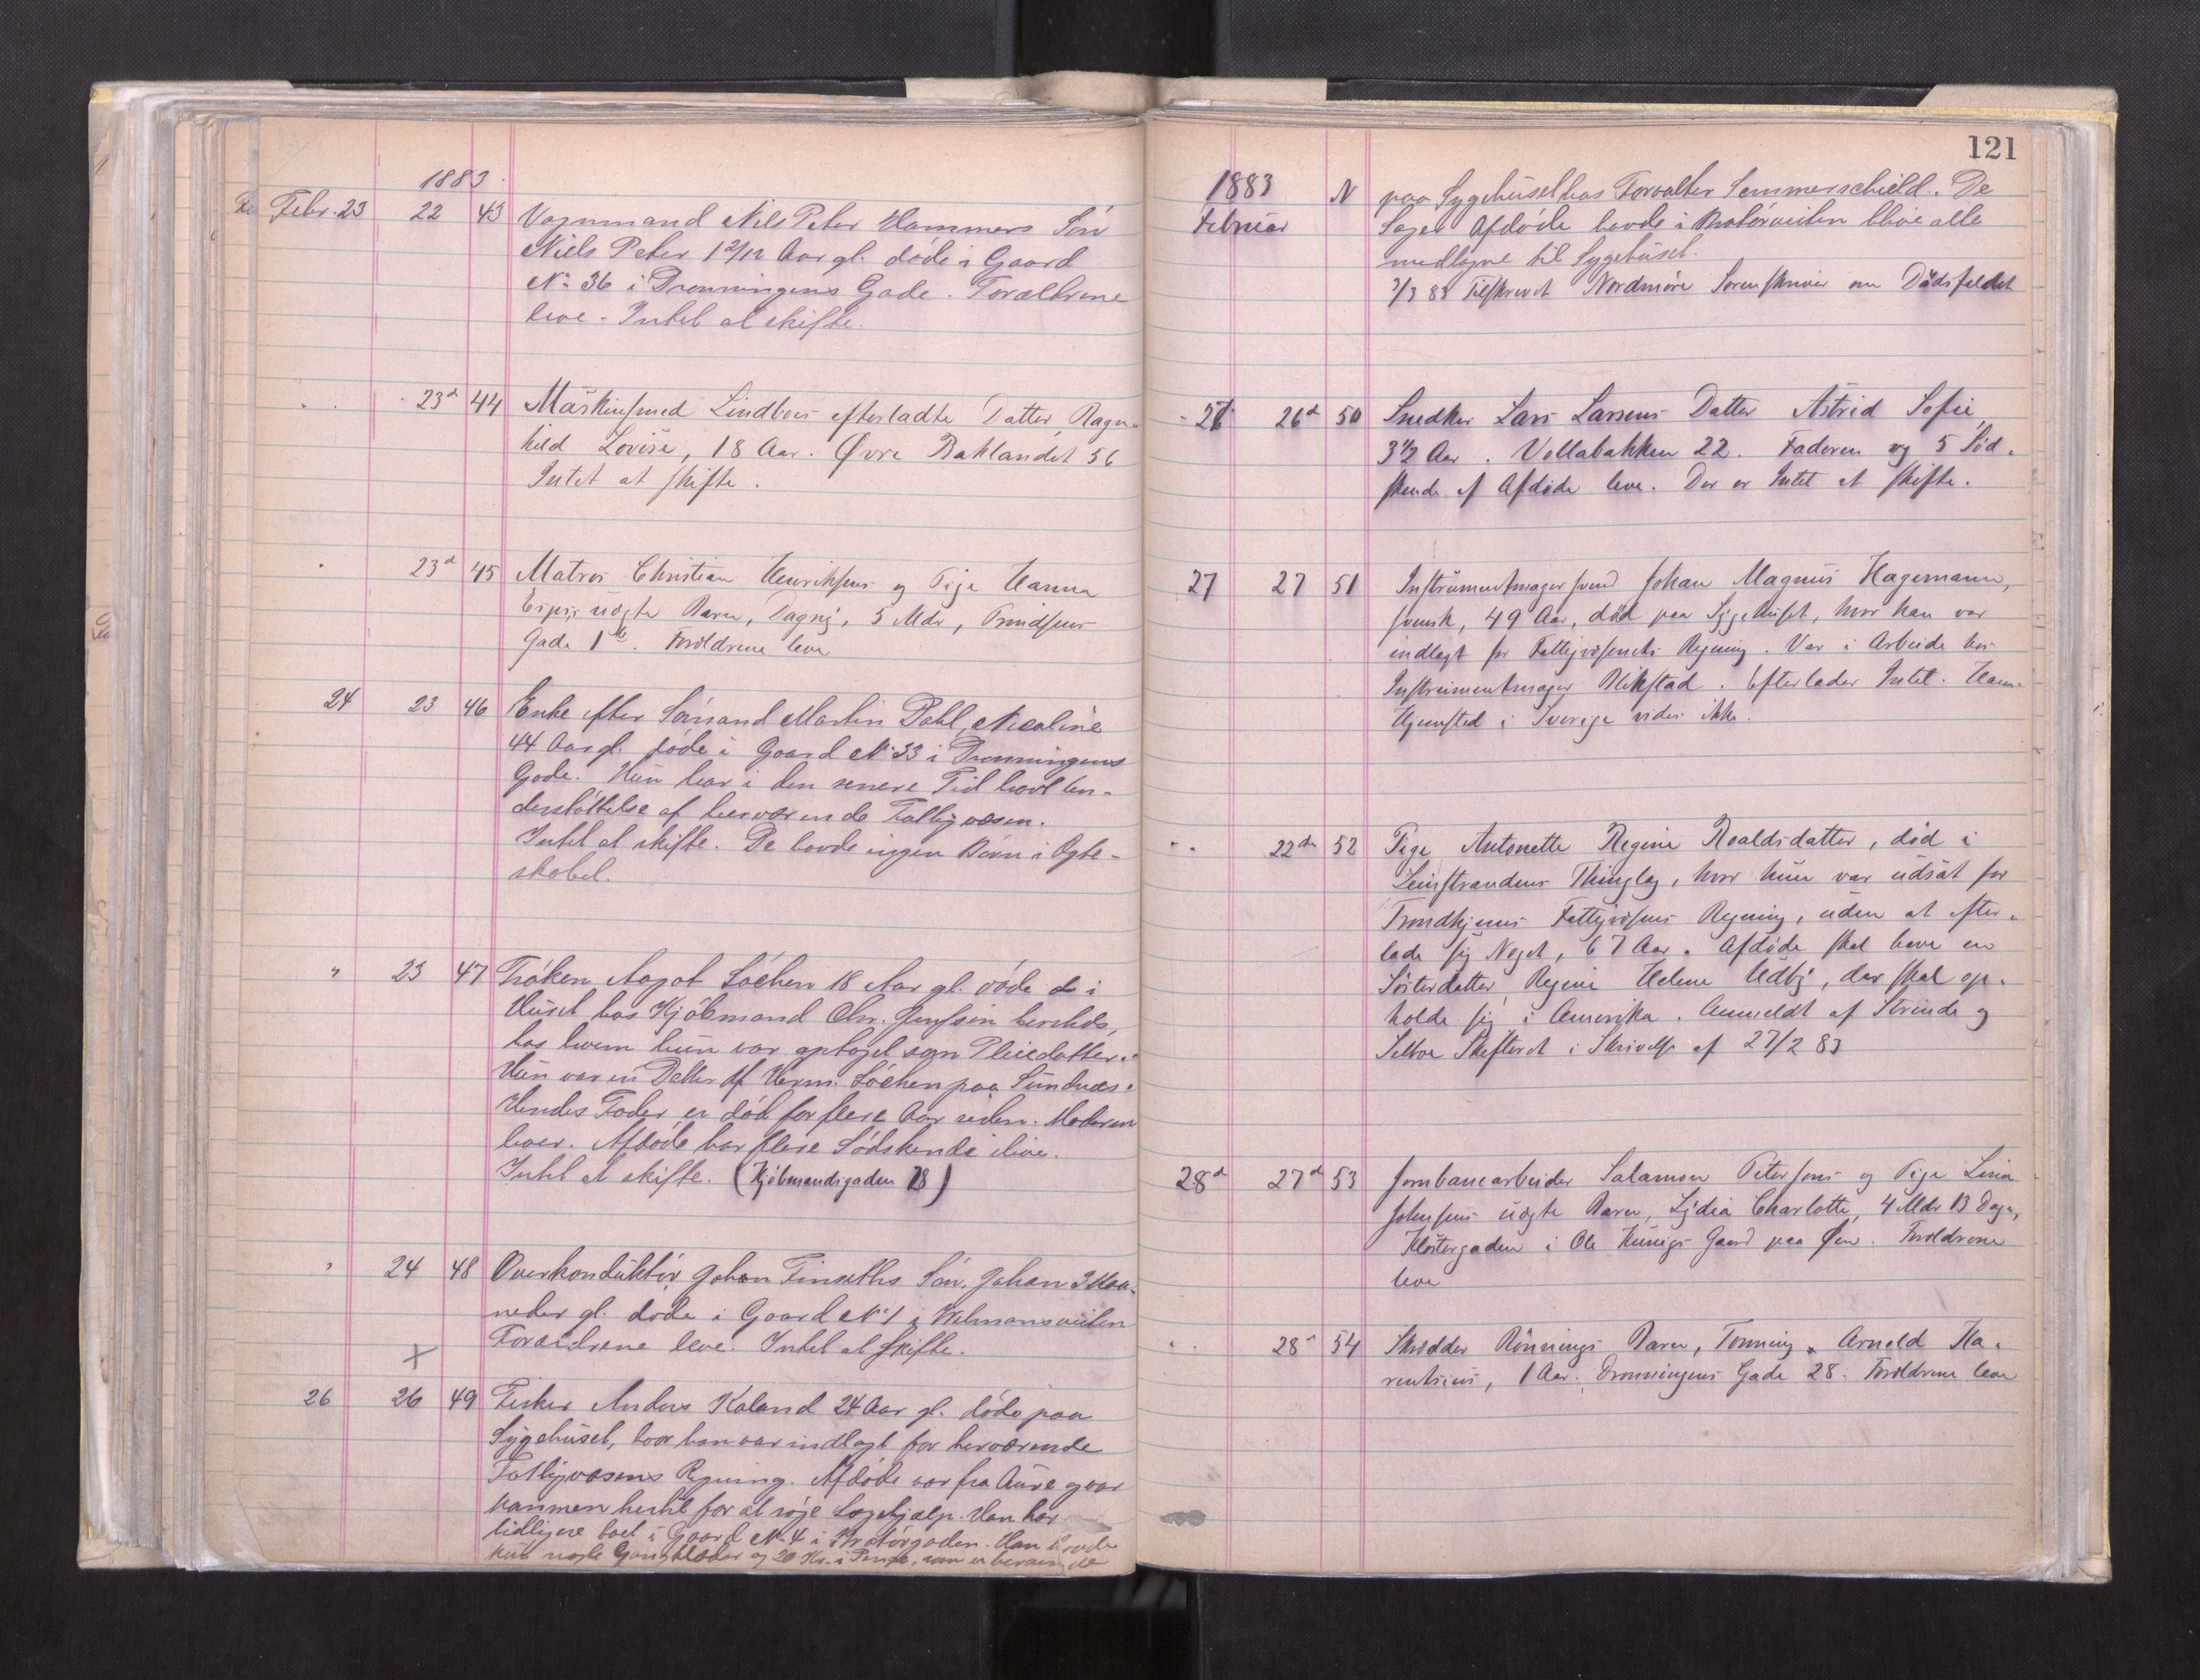 1883
Febr. 23 22 43 Vognmand Nils Peter Hammers Søn
Niels Peter 1 2/12 Aar gl. døde i Gaard
No 36 i Dronningens Gade. Forældrene
leve. Intet at skifte.
23d 44 Maskinsmed Lindboes efterladte Datter, Ragn-
hild Lovise, 18 Aar. Øvre Baklandet 56
Intet at skifte.
23d 45 Matros Christian Henriksens og Pige Hanna
uægte Barn, Dagny, 5 Mdr,
Gade 1b. Forældrene leve
24 23 46 Enke efter Sømand Martin Dahl, Nicoline
44 Aar gl. døde i Gaard No 33 i Dronningens
Gade. Hun har i den senere Tid havt Un-
derstøttelse af herværende Fattigvæsen.
Intet at skifte. De havde ingen Børn i Ægte-
skabet.
" 23 47 Frøken Aagot Løchen 18 Aar gl. døde i
Huset hos Kjøbmand Chr. Jenssen
hos hvem hun var optaget som Pleiedatter.
Hun var en Datter af Herm. Løchen paa Sundnæs.
Hendes Fader er død for flere Aar siden. Moderen
lever. Afdøde har flere Sødskende ilive.
Intet at skifte. (Kjøbmandsgaden 28)
" 24 48 Overkonduktør Johan Finseths Søn, Johan 3 Maa-
neder gl. døde i Gaard No 1 i Welmansveiten
Forældrene leve. Intet at skifte.
X
26 26 49 Fisker Anders Kaland 24 Aar gl. døde paa
Sygehuset, hvor han var indlagt for herværende
Fattigvæsens Regning. Afdøde var fra Aure og var
kommen hertil for at søge Lægehjælp. Han har
tidligere boet i Gaard No 4 i Bratørgaden. Han havde
kun nogle Gangklæder og 20 Kr. i Penge, som er beroende
121
1883 N paa Sygehuset hos Forvalter Sommerschield. De
Februar Sager Afdøde havde i Bratørveiten blive alle
medtagne til Sygehuset.
2/3 83 Tilskrevet Nordmøre Sorenskriver om Dødsfaldet
27 26d 50 Snedker Lars Larsens Datter Astrid Sofie,
3 1/2 Aar. Vollabakken 22. Faderen og 5 Sød-
skende af Afdøde leve. Der er Intet at skifte.
27 27 51 Instrumentmagersvend Johan Magnus Hagemann,
svensk, 49 Aar, død paa Sygehuset, hvor han var
indlagt for Fattigvæsenets Regning. Var i Arbeide hos
Instrumentmager Blikstad. Efterlader Intet. Hans
Hjemsted i Sverige vides ikke.
" 22de 52 Pige Antonette Regine Roaldsdatter, død i
Leinstrandens Thinglag, hvor hun var udsat for
Trondhjems Fattigvæsens Regning, uden at efter-
lade sig Noget, 67 Aar. Afdøde skal have en
Søsterdatter Regine Helene Udby, der skal op-
holde sig i Amerika. Anmeldt af Strinde og
Selboe Skifteret i Skrivelse af 27/2 83
28d 27d 53 Jernbanearbeider Salamon Petersens og Pige Lina
Johnsens uægte Barn, Lydia Charlotte, 4 Mdr 13 Dage,
Klostergaden i Ole Gaard paa Øen. Forældrene
leve
" 28d 54 Skrædder Rønnings Barn, Arnold
1 Aar. Dronningens Gade 28. Forældrene leve